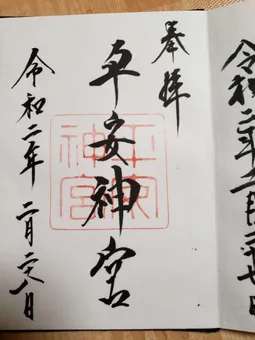 令和二年二月廿七日
奉拝
平安神宮
平安神宮
令和二年 二月廿八日